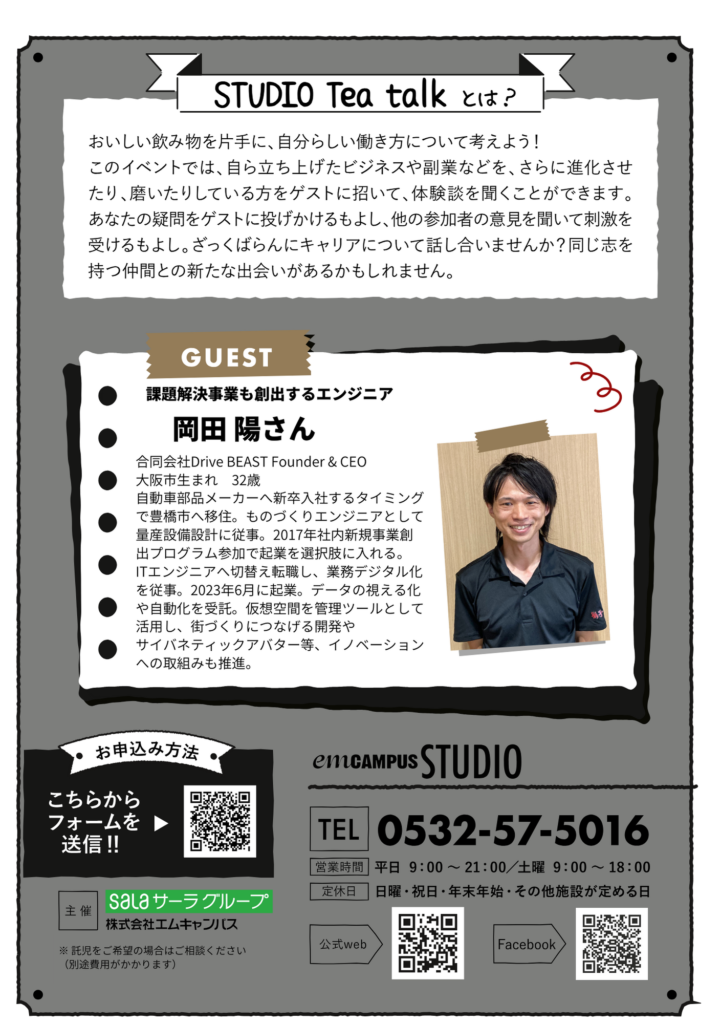 STUDIO Tea talk とは?
おいしい飲み物を片手に、自分らしい働き方について考えよう!
このイベントでは、自ら立ち上げたビジネスや副業などを、さらに進化させ
たり、磨いたりしている方をゲストに招いて、体験談を聞くことができます。
あなたの疑問をゲストに投げかけるもよし、他の参加者の意見を聞いて刺激を
受けるもよし。ざっくばらんにキャリアについて話し合いませんか?同じ志を
持つ仲間との新たな出会いがあるかもしれません。
GUEST
課題解決事業も創出するエンジニア
岡田 陽さん
合同会社Drive BEAST Founder & CEO
大阪市生まれ 32歳
自動車部品メーカーへ新卒入社するタイミング
で豊橋市へ移住。ものづくりエンジニアとして
量産設備設計に従事。2017年社内新規事業創
出プログラム参加で起業を選択肢に入れる。
ITエンジニアへ切替え転職し、業務デジタル化
を従事。2023年6月に起業。データの視える化
や自動化を受託。仮想空間を管理ツールとして
活用し、街づくりにつなげる開発や
サイバネティックアバター等、イノベーション
への取組みも推進。
お申込み方法
こちらから
フォームを
送信!!
主催
salaサーラグループ
株式会社エムキャンパス
※ 託児をご希望の場合はご相談ください
(別途費用がかかります)
emCAMPUS STUDIO
TEL 0532-57-5016
営業時間 平日 9:00 〜 21:00/土曜 9:00 〜 18:00
定休日 日曜・祝日・年末年始・その他施設が定める日
公式web
Facebook